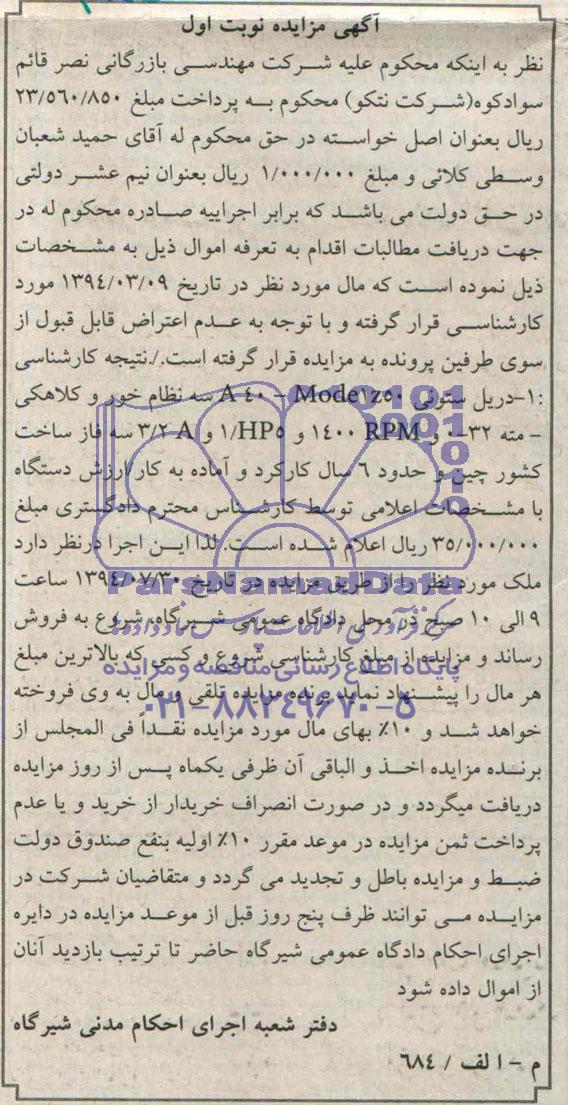 آگهی مزایده نوبت اول
نظر به اینکه محکوم علیه شرکت مهندسی بازرگانی نصر قائم
سوادکوه(شرکت نتکو) محکوم به پرداخت مبلغ ۲۳/۵۶۰/۸۵۰
ریال بعنوان اصل خواسته در حق محکوم له آقای حمید شعبان
وسطی کلائی و مبلغ ۱/۰۰۰/۰۰۰ ریال بعنوان نیم عشر دولتی
در حق دولت می باشد که برابر اجراییه صادره محکوم له در
جهت دریافت مطالبات اقدام به تعرفه اموال ذیل به مشخصات
ذیل نموده است که مال مورد نظر در تاریخ ۱۳۹٤/۰۳/۰۹ مورد
کارشناسی قرار گرفته و با توجه به عدم اعتراض قابل قبول از
سوی طرفین پرونده به مزایده قرار گرفته است./.نتیجه کارشناسی
:۱-دریل ستونی Mode۱z٥۰ – ٤۰ A سه نظام خور و کلاهکی
- مته ۳۲-۰ و RPM ۱٤۰۰ و ۱/HP٥ و ۳/۲ A سه فاز ساخت
کشور چین و حدود ٦ سال کارکرد و آماده به کار/ارزش دستگاه
با مشخصات اعلامی توسط کارشناس محترم دادگستری مبلغ
۳٥/۰۰۰/۰۰۰ ریال اعلام شده است. لذا این اجرا درنظر دارد
ملک مورد نظر را از طریق مزایده در تاریخ ۱۳۹٤/۰۷/۳۰ ساعت
۹ الی ۱۰ صبح در محل دادگاه عمومی شیرگاه، شروع به فروش
رساند و مزایده از مبلغ کارشناسی شروع و کسی که بالاترین مبلغ
هر مال را پیشنهاد نماید برنده مزایده تلقی و مال به وی فروخته
خواهد شد و ۱۰٪ بهای مال مورد مزایده نقداً فی المجلس از
برنده مزایده اخذ و الباقی آن ظرفی یکماه پس از روز مزایده
دریافت میگردد و در صورت انصراف خریدار از خرید و یا عدم
پرداخت ثمن مزایده در موعد مقرر ۱۰٪ اولیه بنفع صندوق دولت
ضبط و مزایده باطل و تجدید می گردد و متقاضیان شرکت در
مزایده می توانند ظرف پنج روز قبل از موعد مزایده در دایره
اجرای احکام دادگاه عمومی شیرگاه حاضر تا ترتیب بازدید آنان
از اموال داده شود
دفتر شعبه اجرای احکام مدنی شیرگاه
م - ا لف / ٦۸٤
ParsNamadData
پایگاه اطلاع رسانی مناقصه و مزایده
۰۲۱-۸۸۳٤۹٦۷۰-۵